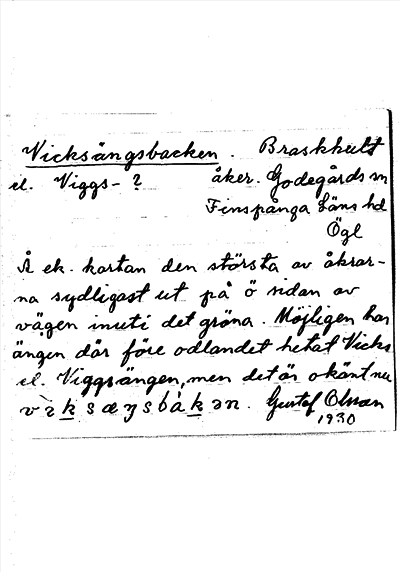 Vicksängsbacken. Braskhult
el. Viggs-? åker. Godegårds sn
Finspånga Läns hd
Ögl
Å ek. kartan den största av åkrar-
na sydligast ut på ö sidan av
vägen inuti det gröna. Möjligen har
ängen där före odlandet hetat Vicks
el. Viggsängen, men det är okänt nu
vìksæŋsbákən. Gustaf Olsson
1930